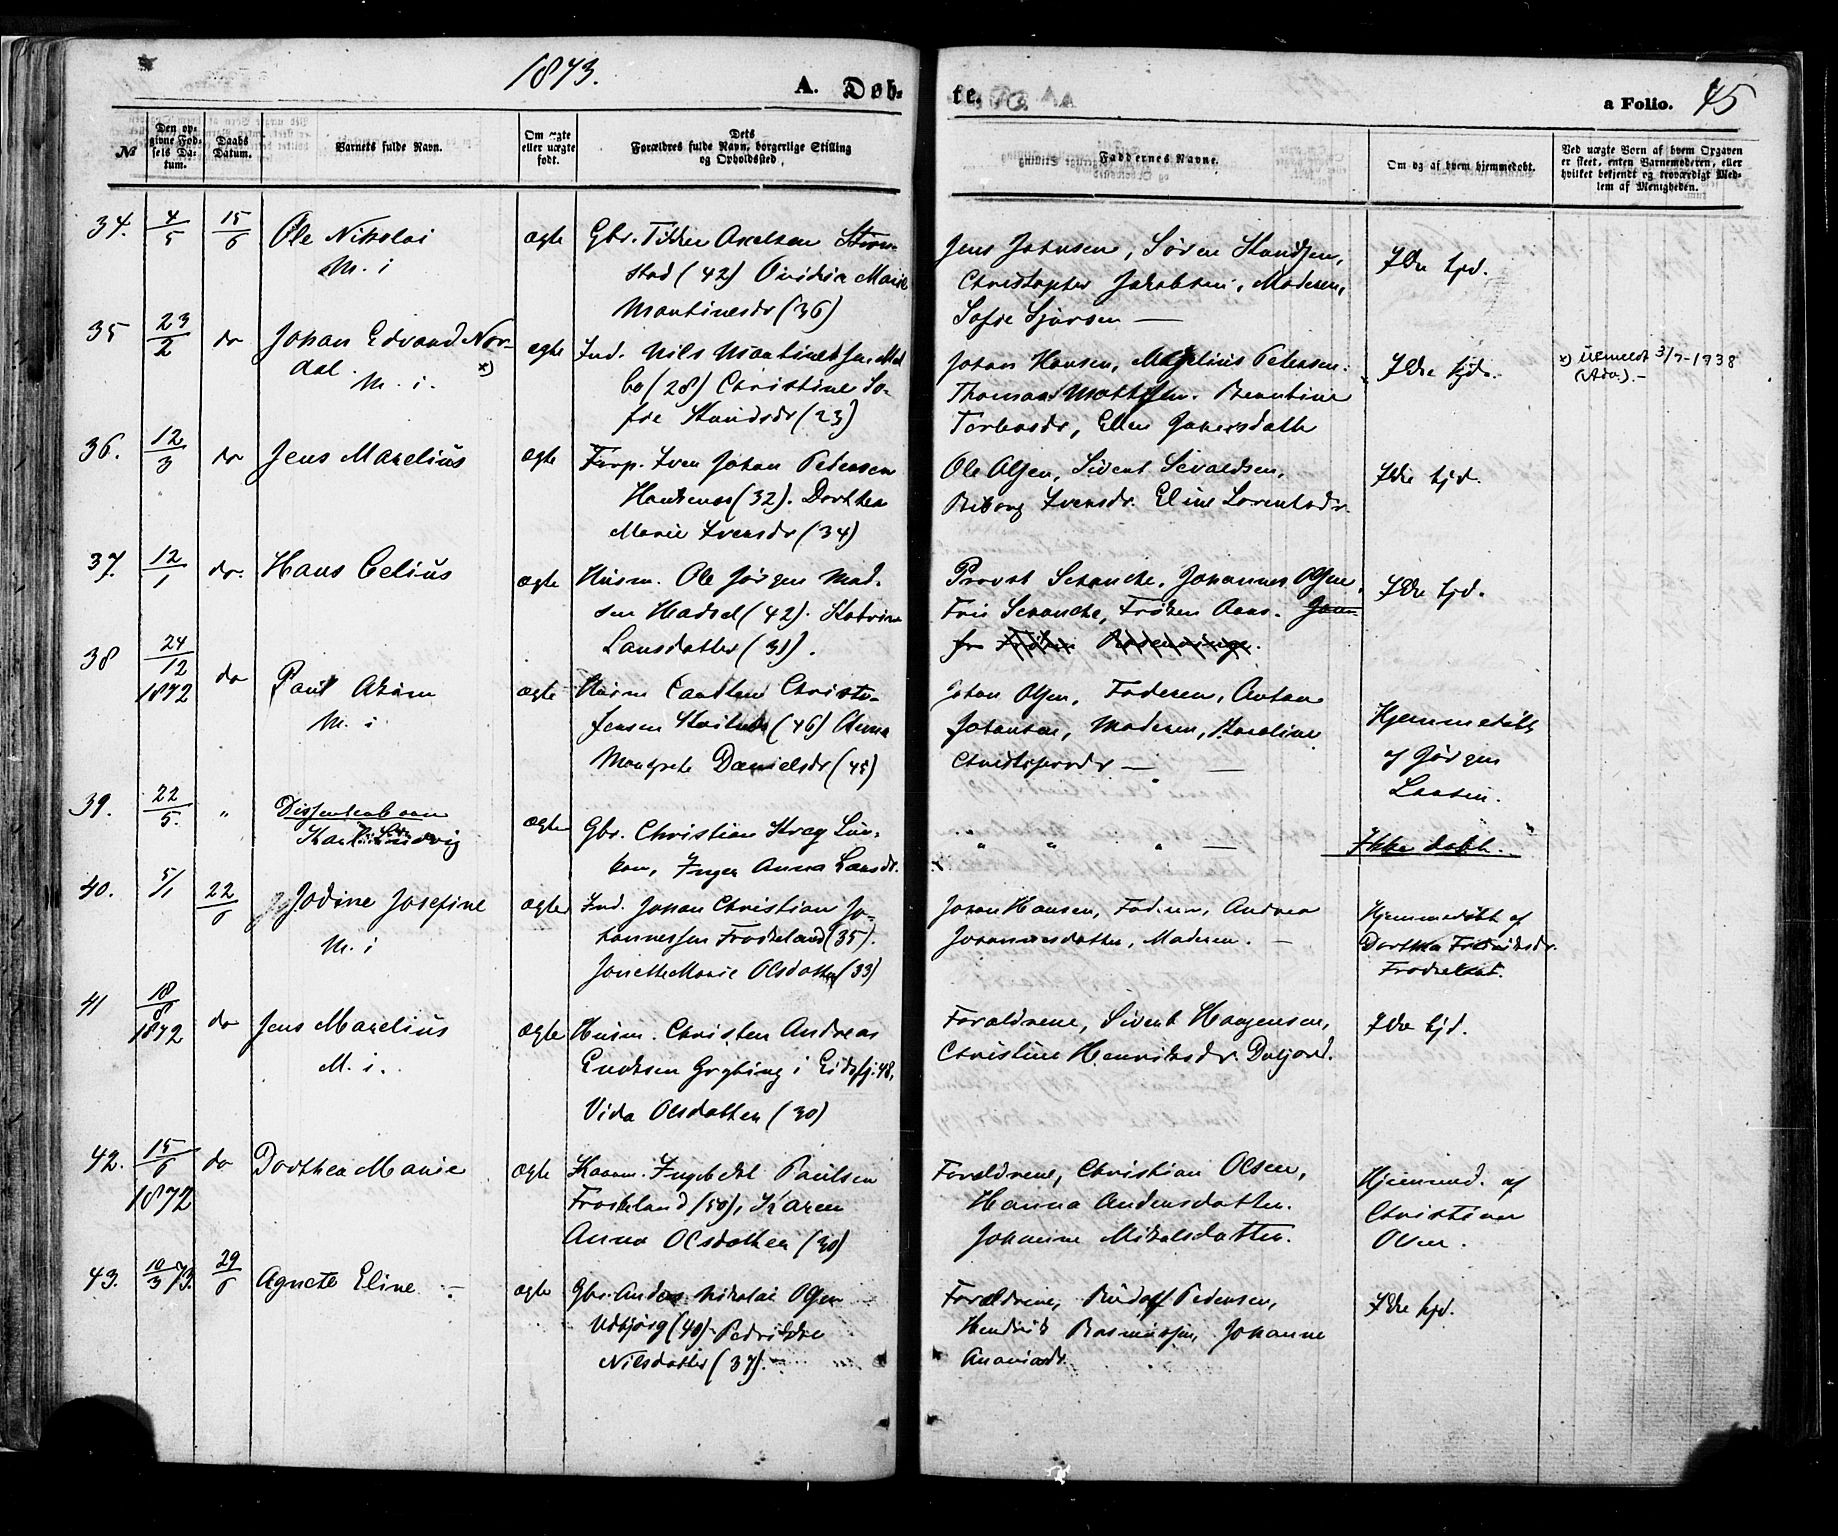 1873.
A. Døb-
te.
a Folio. 45
№
Den op-
givne Fød-
sels Da-
tum.
Daabs
Datum.
Barnets fulde Navn.
Om ægte
eller uægte
født.
Dets
Forældres fulde Navn, borgerlige Stilling
og Opholdssted.
Faddernes Navne.
Om og af hvem hjemmedøbt.
Ved uægte Børn af hvem Opgaven
er skeet, enten Barnemoderen, eller
hvilket bekjendt og troværdigt Med-
lem af Menigheden.
34. 4/5 15/6 Ole Nikolai
M. i
ægte
Gbr. Axelsen
(42) Ovidia Marie
Martinesdr (36)
Jens Johnsen, Søren Knudsen,
Christopher Jakobsen, Moderen,
Sofie Sjursen —
Ikke hjd.
35 23/2 do Johan Edvard Nor-
dal. x)
M. i.
ægte
Ind. Nils Martinussen Mel-
bo (28) Christine So-
fie Knudsdr (23)
Johan Hansen, Petersen.
Thomas Mathisen. Berntine
Torbersdr, Elen
Ikke hjd.
x) Utmeldt 3/7-1938
(Adv.).-
36. 12/3 do Jens Marelius
ægte
Forp. Iver Johan Pedersen
(32). Dorthea
Marie Iversdr (34)
Ole Olsen, Sivert Sivaldsen,
Iversdr. Eline Lorentsdr.
Ikke hjd.
37. 12/1 do. Hans Celius
ægte
Husm. Ole Jørgen Mad-
sen Hadsel (42). Katrine
Larsdatter (31).
Provst Schanche, Johannes Olsen,
Schanche, Frøken Aars.
Ikke hjd.
38 24/12
1872 do
Paul
M. i
ægte
Husm Christo-
fersen (46) Anna
Margrete Danielsdr (45)
Johan Olsen, Faderen, Anton
Johansen, Moderen, Karoline
Christofersdr — —
Hjemmedøbt
af Jørgen
Larsen.
39. 22/5. "
Dissenterbarn
Karl Ludvig
ægte
Gbr. Christian Krag
Inger Anna Larsdr.
" " " — "
Ikke døbt.
40. 5/1 22/6 Jodine Josefine
M. i
ægte
Ind. Johan Christian Jo-
hannessen Froskeland (35).
Jonette Marie Olsdatter (33)
Johan Hansen, Faderen, Andrea
Johannesdatter, Moderen. —
Hjemmedøbt af
Dorthea Fredriksdr.
41 18/8
1872 do Jens Marelius
M. i.
ægte
Husm. Christen Andreas
Enoksen Grytting i Eidsfj. 48,
Vida Olsdatter (30)
Forældrene, Sivert Haagensen,
Christine Henriksdr.
Ikke hjd.
42. 15/6
1872 do Dorthea Marie
ægte
Ingebrkt Paulsen
Froskeland (50), Karen
Anna Olsdatter (30)
Forældrene, Christian Olsen,
Hanna Andersdatter.
Johanna Mikalsdatter.
Hjemmed. af
Christian
Olsen.
43. 10/3 73. 29/6 Agnete Eline —
ægte
Gbr. Anders Nikolai Olsen
(40)
Nilsdatter (37).
Forældrene, Rudolf Pedersen,
Hendrik Rasmussen, Johanne
Ananiasdr.
Ikke hjd.